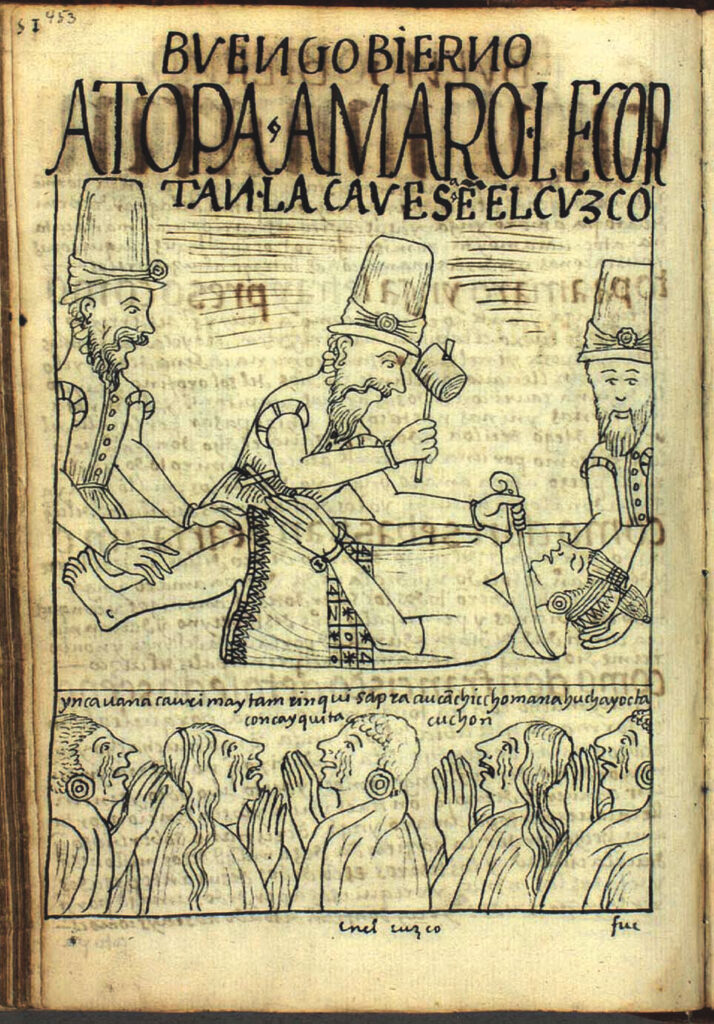 51 453
BVEN GOBIERNO
ATOPA·AMARO·LE COR
TAN·LA CAVESA Ē EL CVZCO
ynca uana cauri maytam rinqui sapra aucāchiccho mana huchayocta
concayquita cuchon
en el cuzco
fue